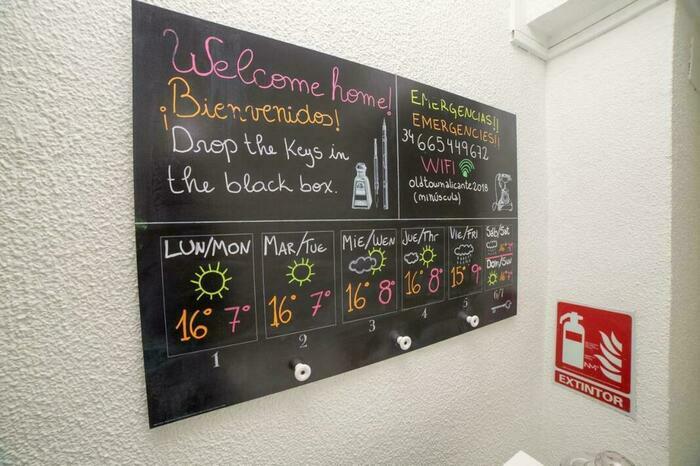 Welcome home!
¡Bienvenidos!
Drop the Keys in
the black box.
EMERGENCIAS!!
EMERGENCIES!!
34 665449672
WIFI
oldtownalicante2018
(minúscula)
LUN/MON
16° 7°
1
MAR/TUE
16° 7°
2
MIE/WEN
16° 8°
3
JUE/THR
16° 8°
4
VIE/FRI
15° 9°
5
SÁB/SAT
DOM/SUN
6/7
EXTINTOR